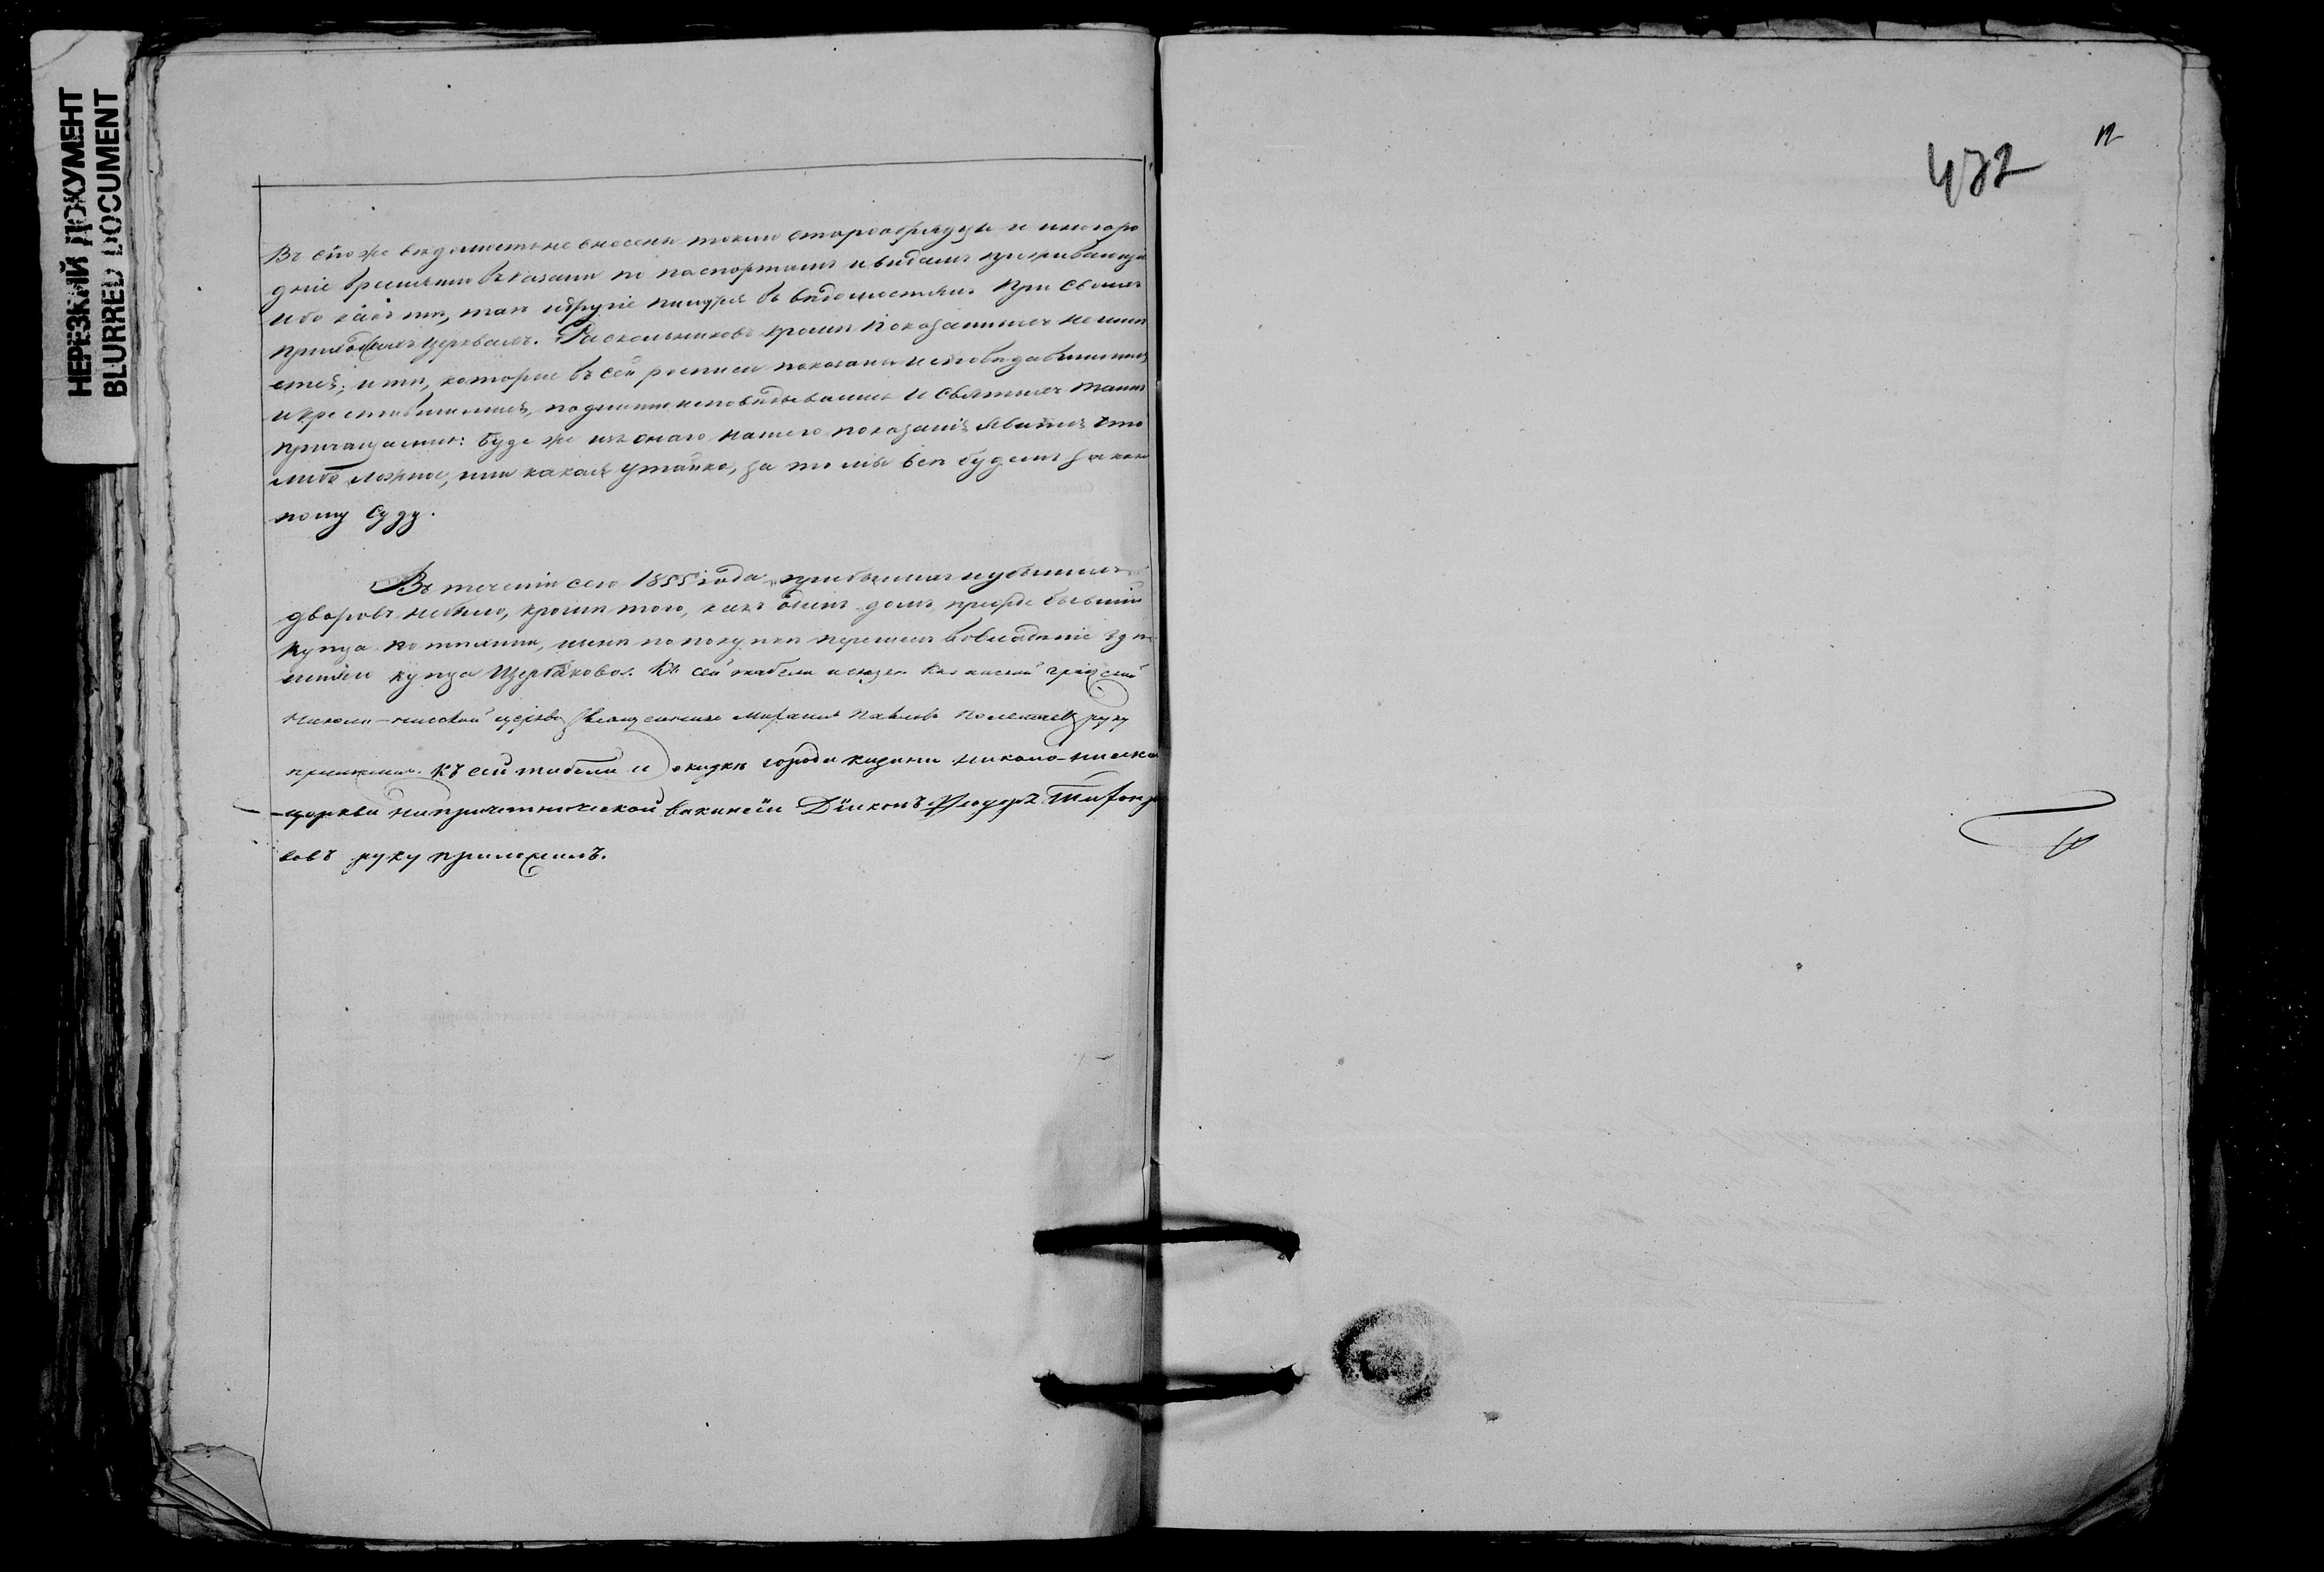 НЕРЕЗКИЙ ДОКУМЕНТ
BLURRED DOCUMENT
Въ сію же вѣдомость не внесены токмо старообрядцы и иногоро
дніе временно въ Казани по паспортамъ и видамъ проживающіе
ибо какъ тѣ, такъ и другіе пишутся въ вѣдомостяхъ при своихъ
приходскихъ церквахъ. Раскольниковъ кромѣ показанныхъ не имѣ
ется; и тѣ, которые въ сей росписи показаны исповѣдавшимися
и причастившимися, подлинно исповѣдывались и святыхъ таинъ
причащались: буде же изъ онаго нашего показанія явится что
либо ложное, или какая утайка, за то мы всѣ будемъ закон
ному суду.
Въ теченіи сего 1855 года прибылыхъ и убылыхъ
дворовъ не было, кромѣ того, какъ одинъ домъ, прежде бывшій
купца, нынѣ по покупкѣ перешелъ во владѣніе здѣ
шняго купца Щербакова. Къ сей табели и Казанской градской
Николо-Нисской церкви Священникъ Павловъ руку
приложилъ. Къ сей табели и города Казани Николо-Нисской
церкви на причетнической вакансіи Діаконъ Ѳеодоръ
вовъ руку приложилъ.
472
12